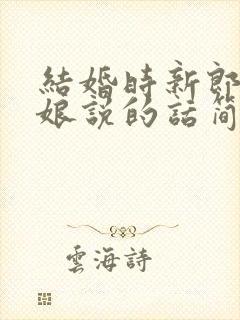 結婚時新郎
娘說的話简
雲海詩